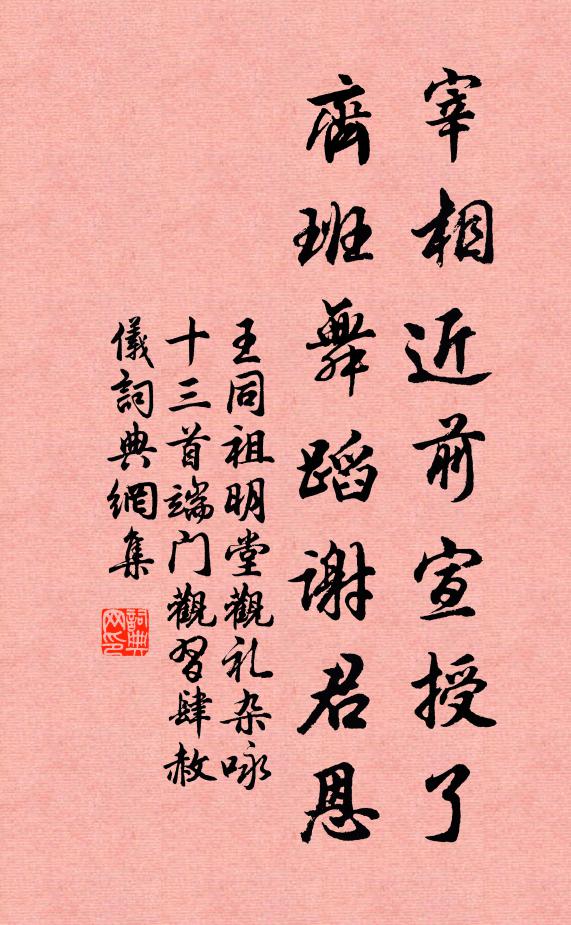 宰相近前宣授了
齊班舞蹈谢君恩
王同祖明堂觀礼杂咏
十三首端门觀習肆赦
儀詞典網集
詞典
网印